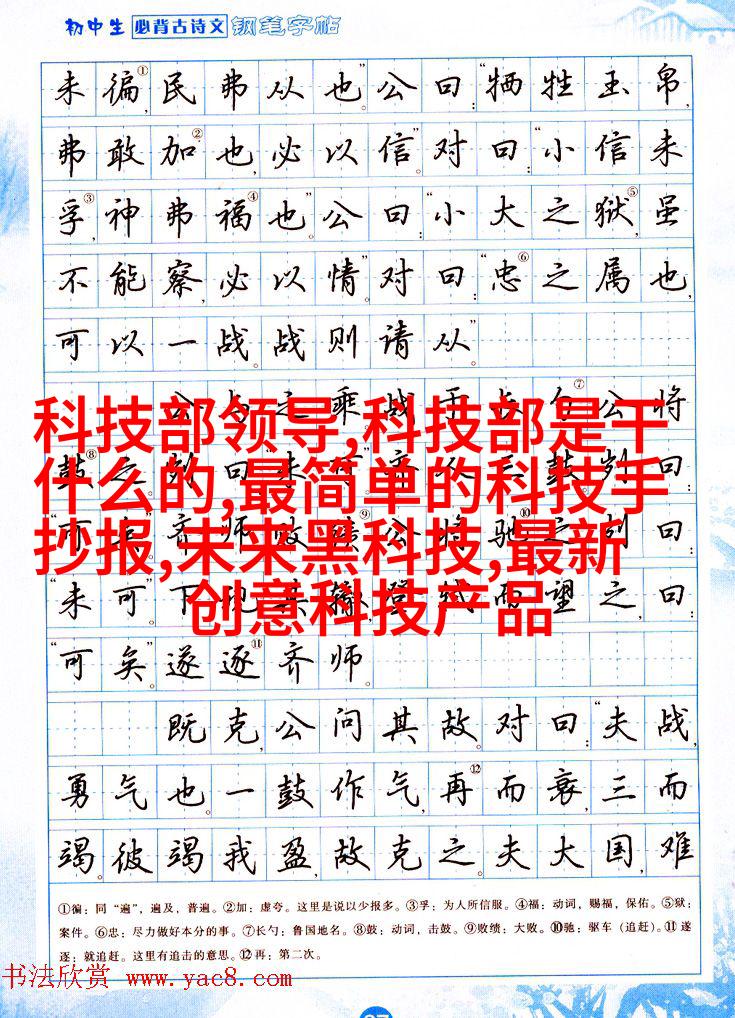 初中生必背古诗文钢笔字帖
未徧①,民弗从也。”公曰:“牺牲玉帛,
弗敢加②也,必以信。”对曰:“小信未
孚③,神弗福④也。”公曰:“小大之狱⑤,虽
不能察,必以情。”对曰:“忠⑥之属也,
可以一战。战则请从。”
公与之乘,战于长勺⑦。公将
科技部领导,科技部是干
鼓⑧之。刿曰:“未可。”齐人三鼓。刿曰:
什么的,最简单的科技手
“可矣。”齐师败绩⑨。公将驰⑩之。刿曰:
抄报,未来黑科技,最新
“未可。”下视其辙,登轼而望之,曰:
创意科技产品
“可矣。”遂逐⑪齐师。
既克,公问其故。对曰:“夫战,
勇气也。一鼓作气,再⑫而衰,三而
竭。彼竭我盈,故克之。夫大国,难
①徧:同“遍”,遍及,普遍。②加:虚夸。这里是说以少报多。③孚:为人所信服。④福:动词,赐福,保佑。⑤狱:
案件。⑥忠:尽力做好本分的事。⑦长勺:鲁国地名。⑧鼓:动词,击鼓。⑨败绩:大败。⑩驰:驱车(追赶)。⑪遂
逐:就追赶。这里有追击的意思。⑫再:第二次。
书法欣赏 www.yac8.com